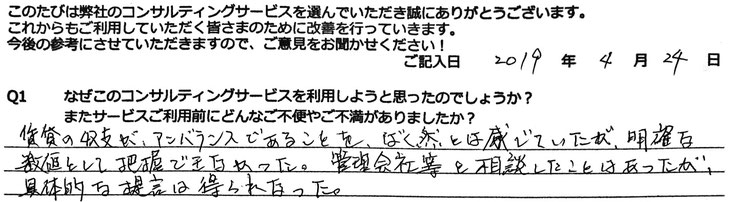 このたびは弊社のコンサルティングサービスを選んでいただき誠にありがとうございます。
これからもご利用していただく皆さまのために改善を行っていきます。
今後の参考にさせていただきますので、ご意見をお聞かせください!
ご記入日 2019 年 4 月 24 日
Q1 なぜこのコンサルティングサービスを利用しようと思ったのでしょうか?
またサービスご利用前にどんなご不便やご不満がありましたか?
賃貸の収支が、アンバランスであることを、ばく然とは感じていたが、明確な
数値として把握できなかった。管理会社等と相談したことはあったが、
具体的な提言は得られなった。